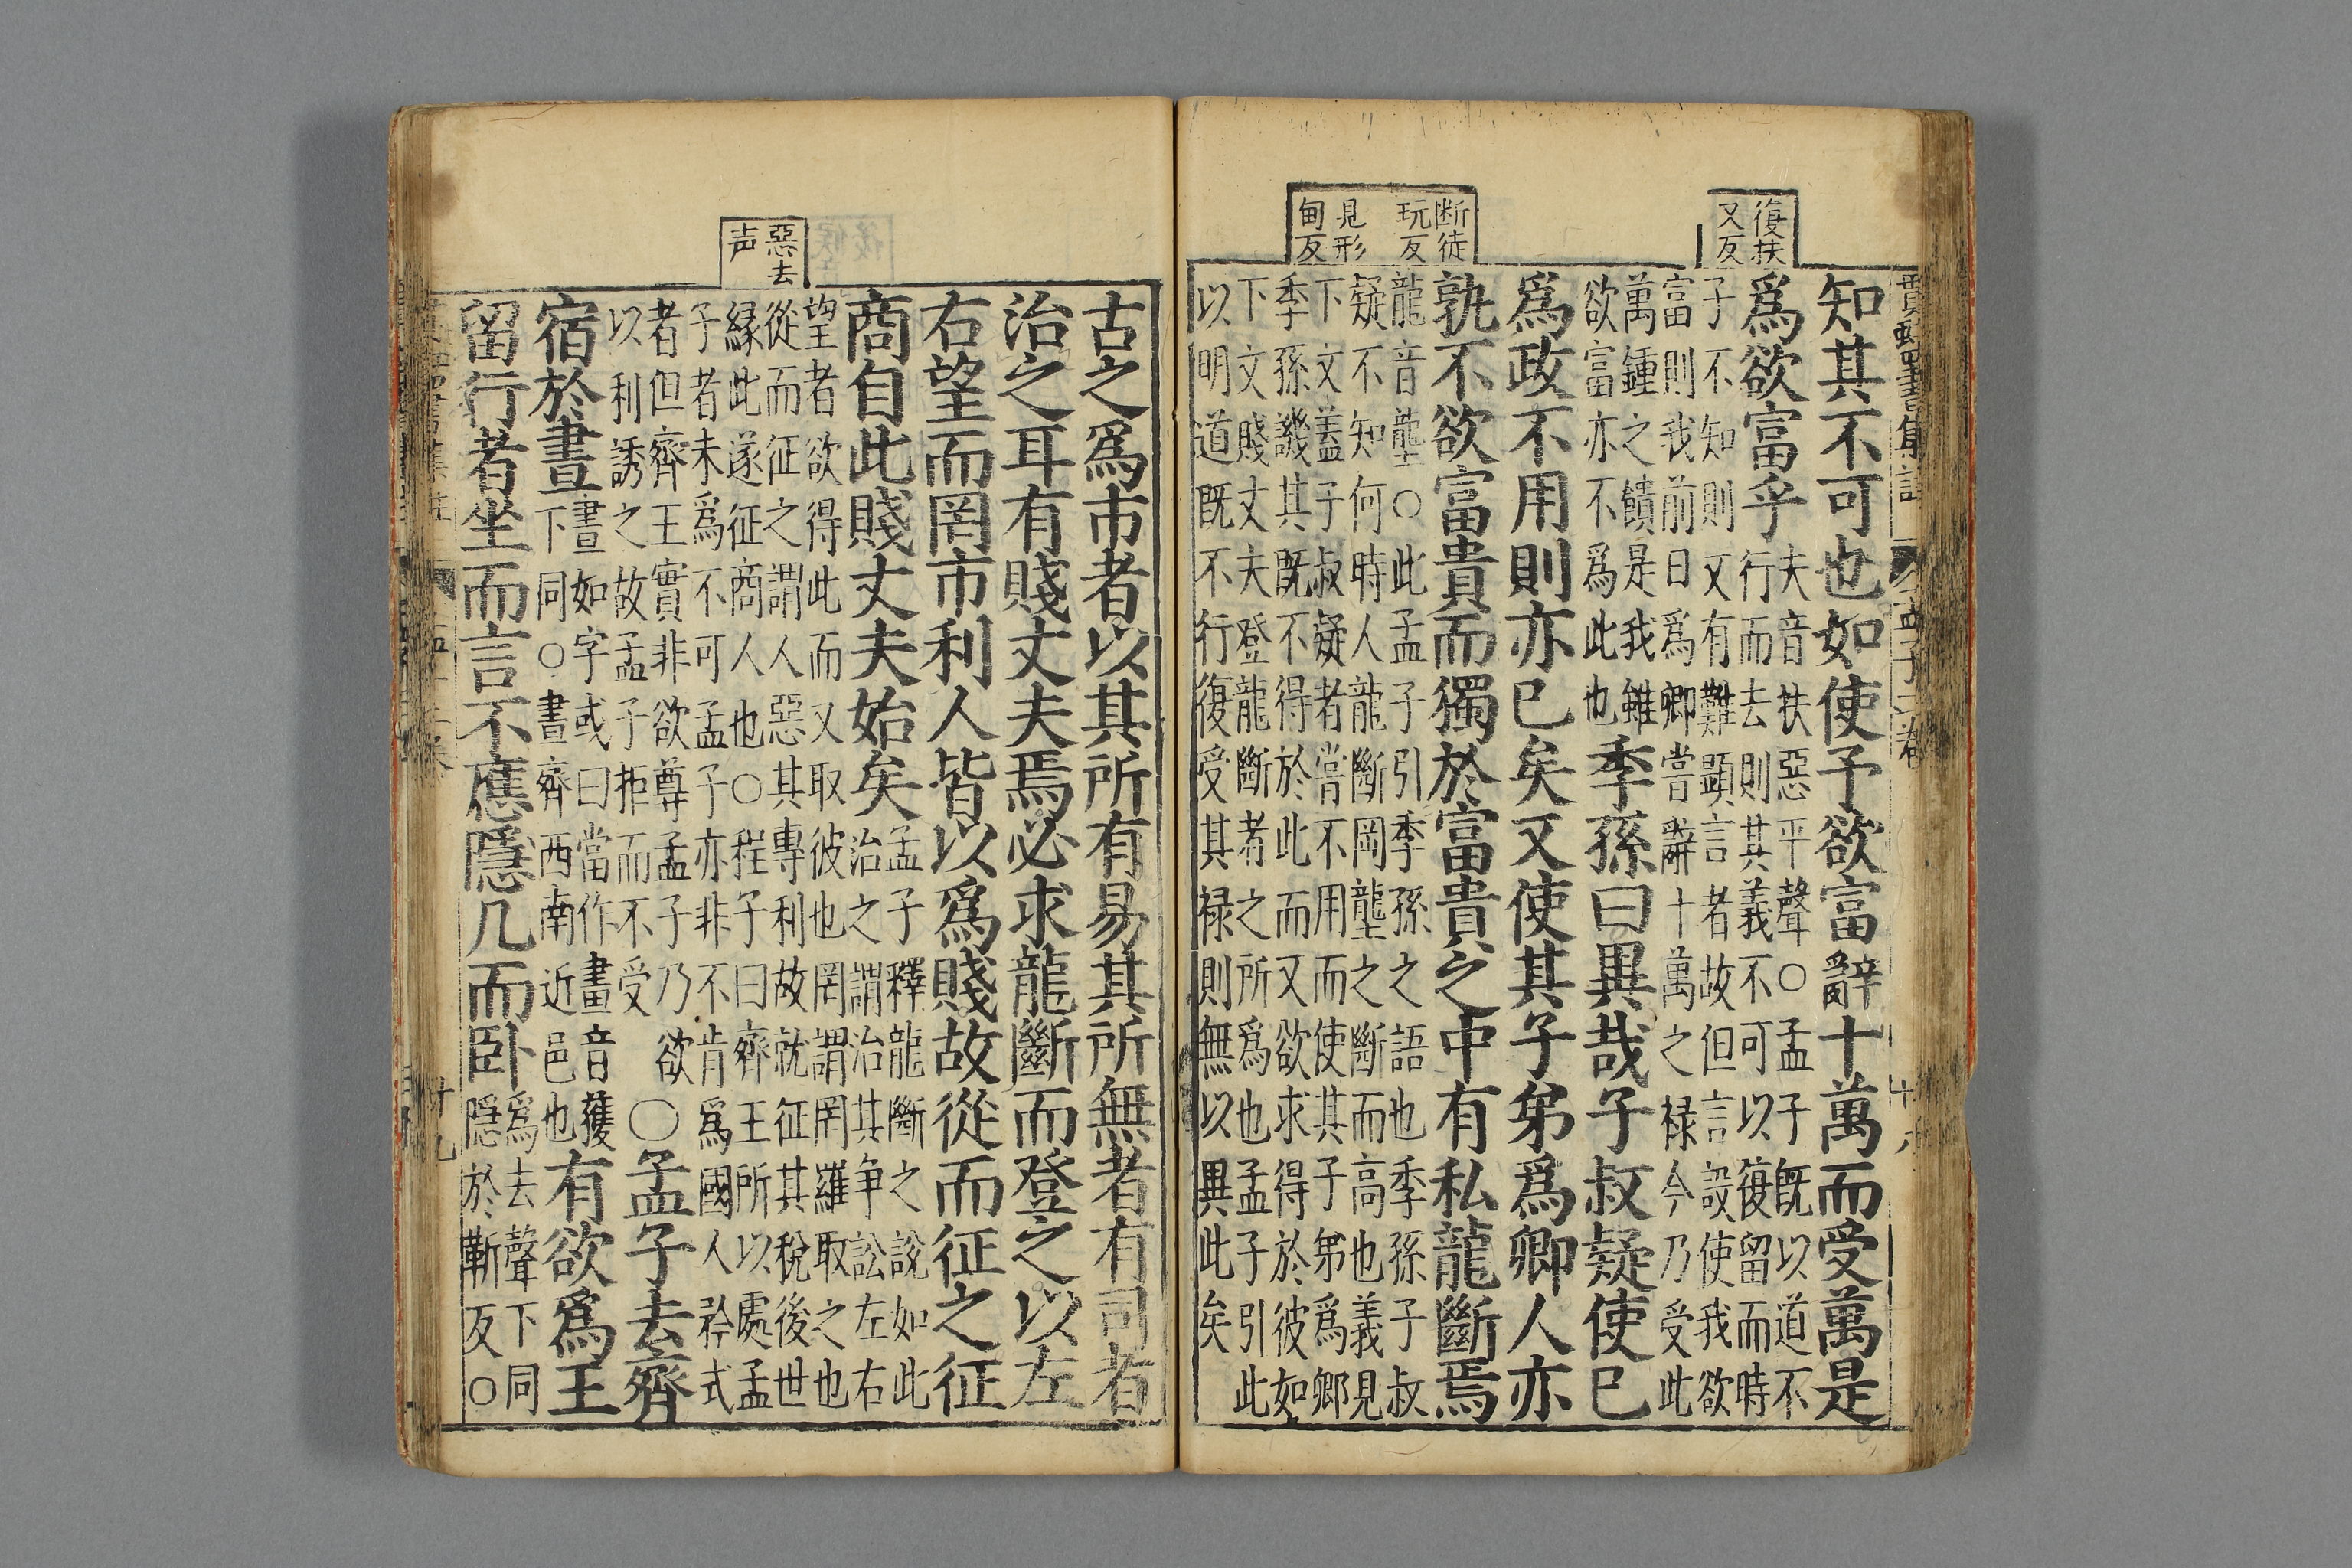 復扶
又反
断徒
玩反
見形
甸反
孟子二卷
知其不可也如使予欲富辭十萬而受萬是
爲欲富乎
夫音扶惡平聲○孟子既以道不
行而去則其義不可以復留而時
子不知則又有難顯言者故但言設使我欲
富則我前日爲卿嘗辭十萬之禄今乃受此
萬鍾之饋是我雖
欲富亦不爲此也
季孫曰異哉子叔疑使已
爲政不用則亦已矣又使其子弟爲卿人亦
孰不欲富貴而獨於富貴之中有私龍斷焉
龍音壟○此孟子引季孫之語也季孫子叔
疑不知何時人龍斷岡壟之斷而高也義見
下文蓋子叔疑者嘗不用而使其子弟爲卿
季孫譏其既不得於此而又欲求得於彼如
下文賤丈夫登龍斷者之所爲也孟子引此
以明道既不行復受其禄則無以異此矣
惡去
声
古之爲市者以其所有易其所無者有司者
治之耳有賤丈夫焉必求龍斷而登之以左
右望而罔市利人皆以爲賤故從而征之征
商自此賤丈夫始矣
孟子釋龍斷之說如此
治之謂治其争訟左右
望者欲得此而又取彼也罔謂罔羅取之也
從而征之謂人惡其專利故就征其稅後世
縁此遂征商人也○程子曰齊王所以處孟
子者未爲不可孟子亦非不肯爲國人矜式
者但齊王實非欲尊孟子乃欲
以利誘之故孟子拒而不受
○孟子去齊
宿於晝
晝如字或曰當作畫音獲
下同○晝齊西南近邑也
有欲爲王
留行者坐而言不應隱几而卧
爲去聲下同
隠於靳反○
廿九